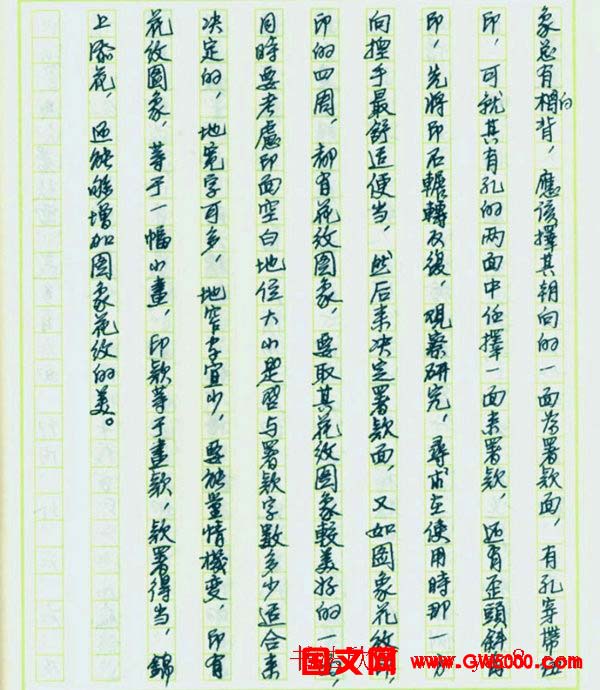 象总有相向背，應该擇其朝向的一面为署款面，有孔穿帶纽
印，可就其有孔的两面中任擇一面来署款，还有歪頭斜
印，先將印石輾轉反復，观察研究，尋求在使用時那一方
向握手最舒适便当，然后来决定署款面，又如圖象花纹
印的四周，都有花纹圖象，要取其花纹圖象較美好的一
同時要考慮印面空白地位大小是否与署款字數多少适合来
决定的，地宽字可多，地窄字宜少，要能量情機变，印有
花纹圖象，等于一幅小畫，印款等于畫款，款署得当，錦
上添花，还能够增加圖象花纹的美。
国文网
www.GW5000.com